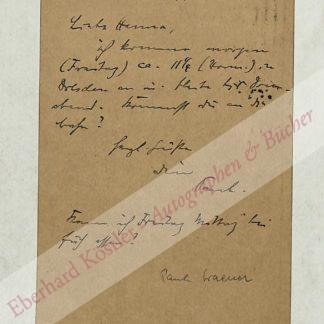 Liebe Hanna,
ich komme morgen
(Freitag) ca. 11¼ (Vorm.) in
Dresden an u. bleibe bis
abend. kommst du an die
bahn?
Herzl. Grüße
dein
Paul.
Kann ich Freitag Mittag bei
Euch essen?
Paul
Eberhard Köstler Autographen & Bücher